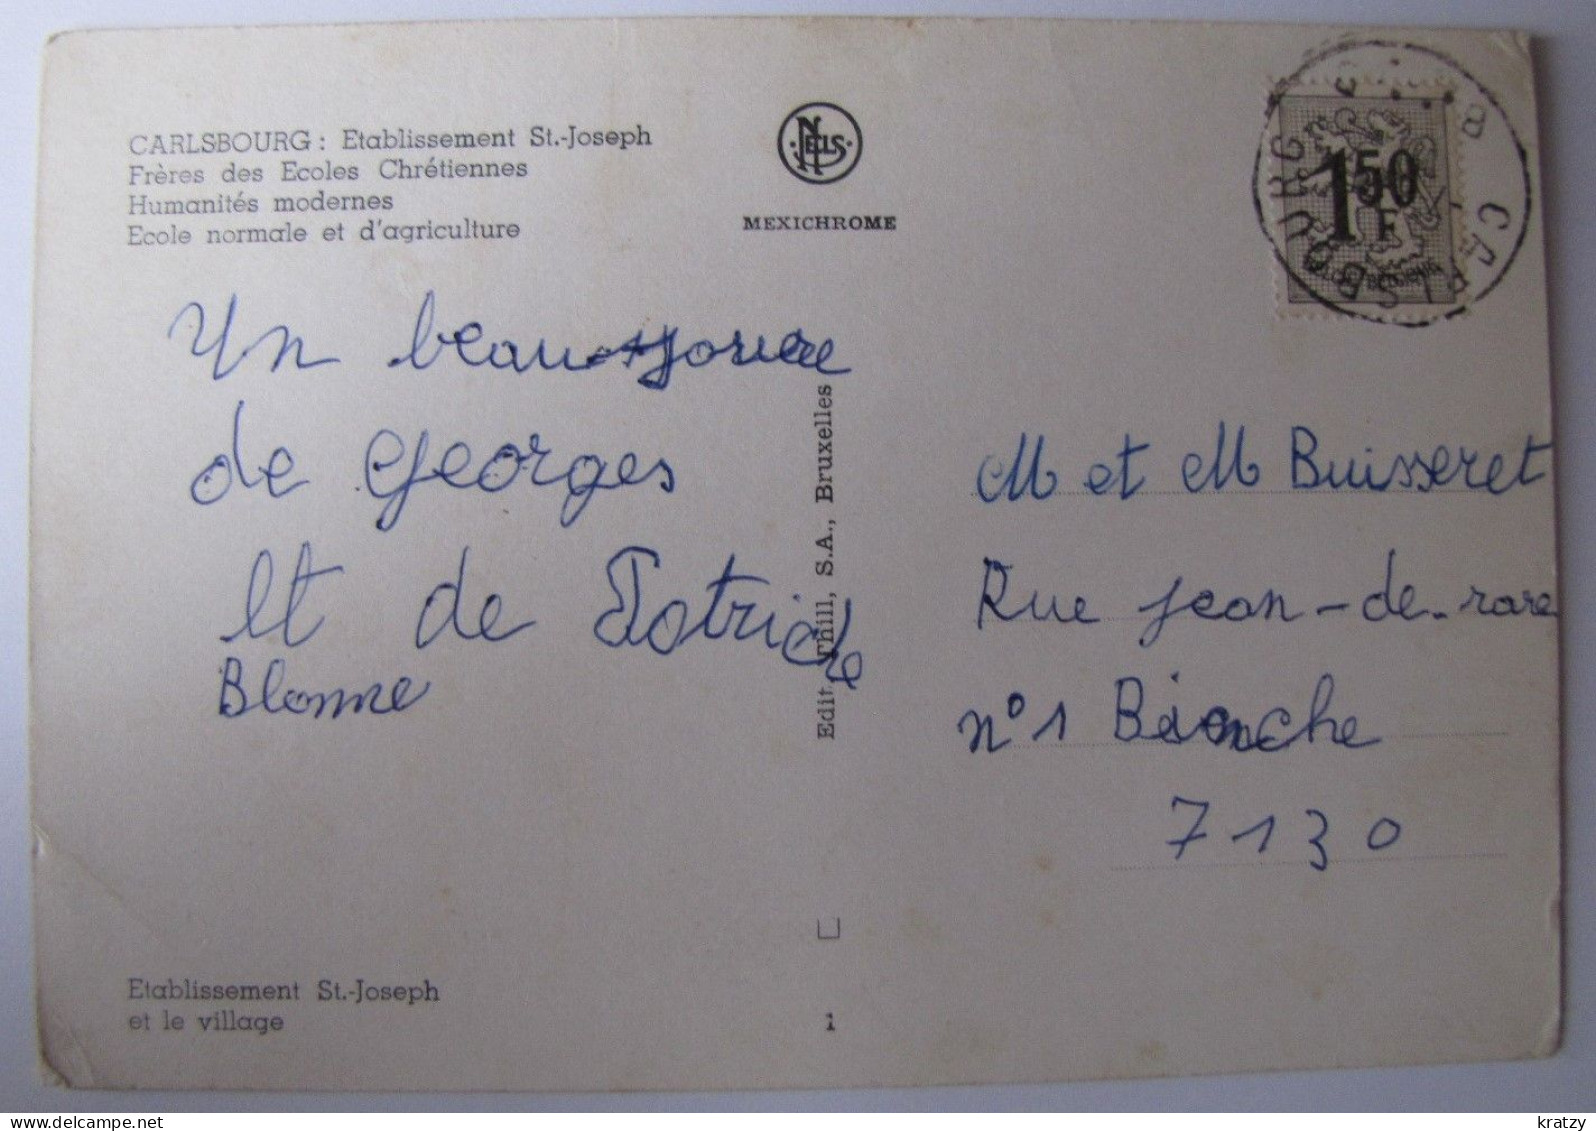 CARLSBOURG : Etablissement St.-Joseph
Frères des Ecoles Chrétiennes
Humanités modernes
Ecole normale et d'agriculture
NELS
MEXICHROME
1 50 F
CARLSBOURG
B
Un beau
de Georges
et de Patrick
M et M Buisseret
Rue Jean-de-rare
n° 1 Beinche
7130
Edit. Thill, S.A., Bruxelles
Etablissement St.-Joseph
et le village
1
www.delcampe.net
kratzy